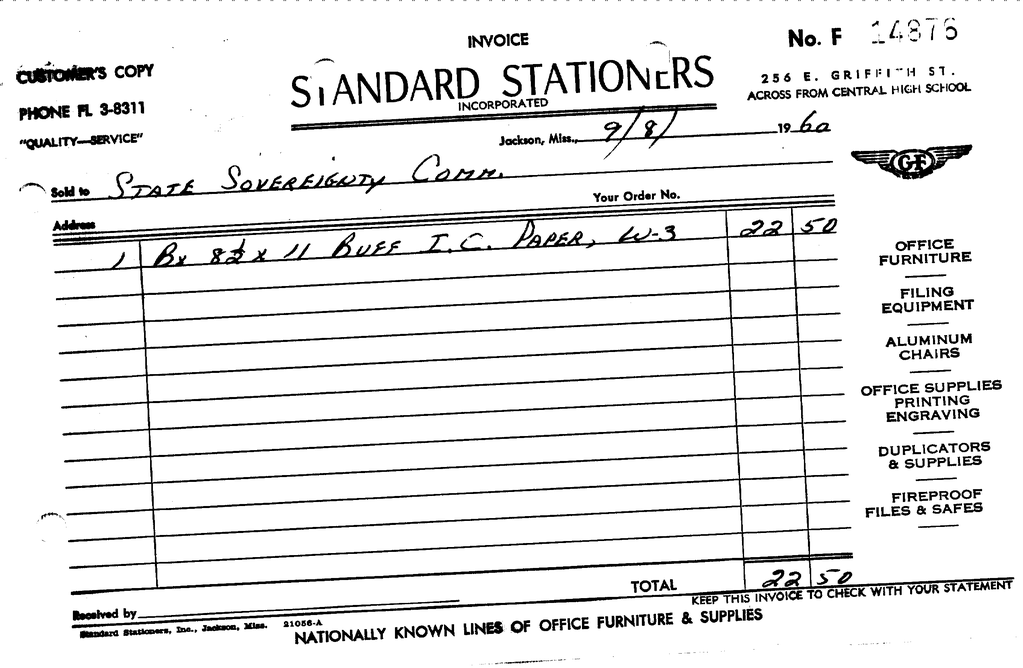 INVOICE
No. F 14876
CUSTOMER'S COPY
STANDARD STATIONERS
INCORPORATED
256 E. GRIFFITH ST.
ACROSS FROM CENTRAL HIGH SCHOOL
PHONE FL 3-8311
"QUALITY—SERVICE"
Jackson, Miss., 9/8/ 1960
GF
Sold to STATE SOVEREIGNTY COMM.
Your Order No.
Address
1 BX 8½ x 11 BUFF I.C. PAPER, W-3 22 50
OFFICE
FURNITURE
FILING
EQUIPMENT
ALUMINUM
CHAIRS
OFFICE SUPPLIES
PRINTING
ENGRAVING
DUPLICATORS
& SUPPLIES
FIREPROOF
FILES & SAFES
TOTAL 22 50
KEEP THIS INVOICE TO CHECK WITH YOUR STATEMENT
Received by
Standard Stationers, Inc., Jackson, Miss. 21056-A
NATIONALLY KNOWN LINES OF OFFICE FURNITURE & SUPPLIES